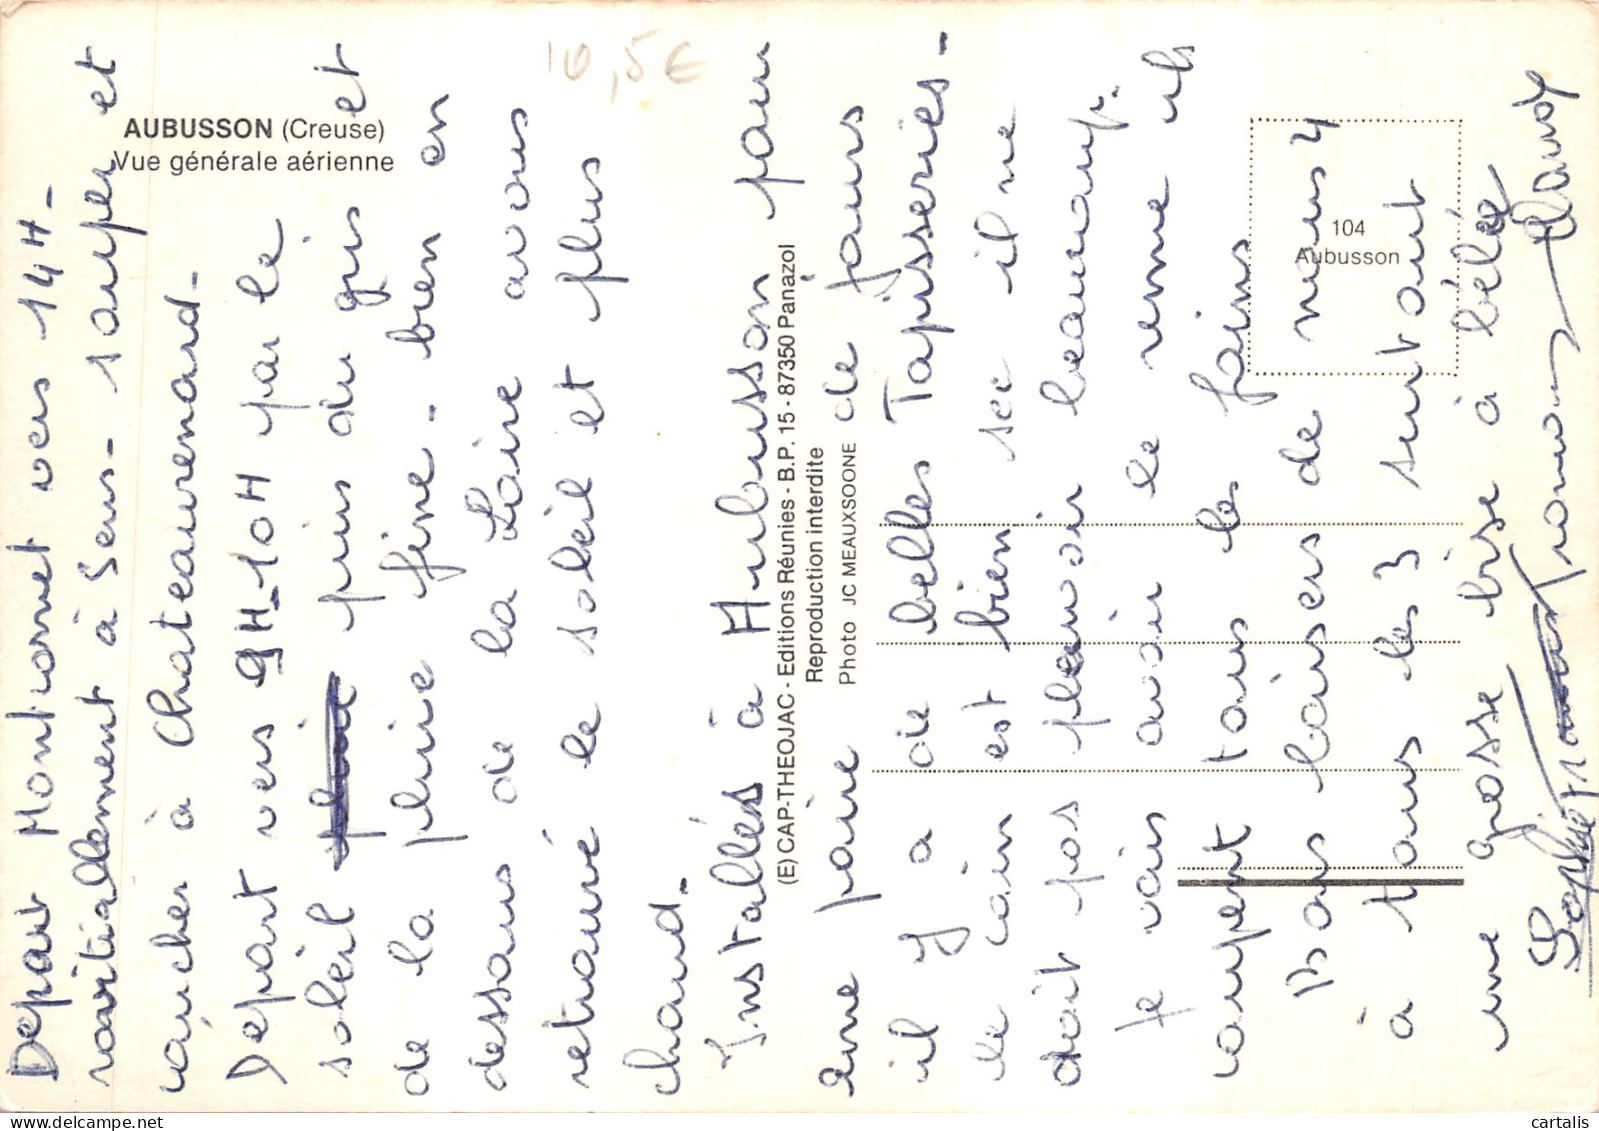 AUBUSSON (Creuse)
Vue générale aérienne
10,5€
Depart vers 14H-
ravitaillement à Sens- souper et
coucher à Chateaurenard-
Depart vers 9H-10H par le
soleil puis du gris et
de la pluie fine- bien en
dessous de la Loire avons
retrouvé le soleil et plus
chaud-
Installés à Aubusson pour
une paire de jours
il y a de belles Tapisseries-
le coin est bien sec il ne
doit pas pleuvoir beaucoup.
Je vois avoir le reme ils
coupent tous les foins
Bons baisers de nous 4
à tous les 3 surtout
une grosse bise à bélée
Sophie
(E) CAP-THEOJAC - Editions Réunies - B.P. 15 - 87350 Panazol
Reproduction interdite
Photo JC MEAUXSOONE
104
Aubusson
cartalis